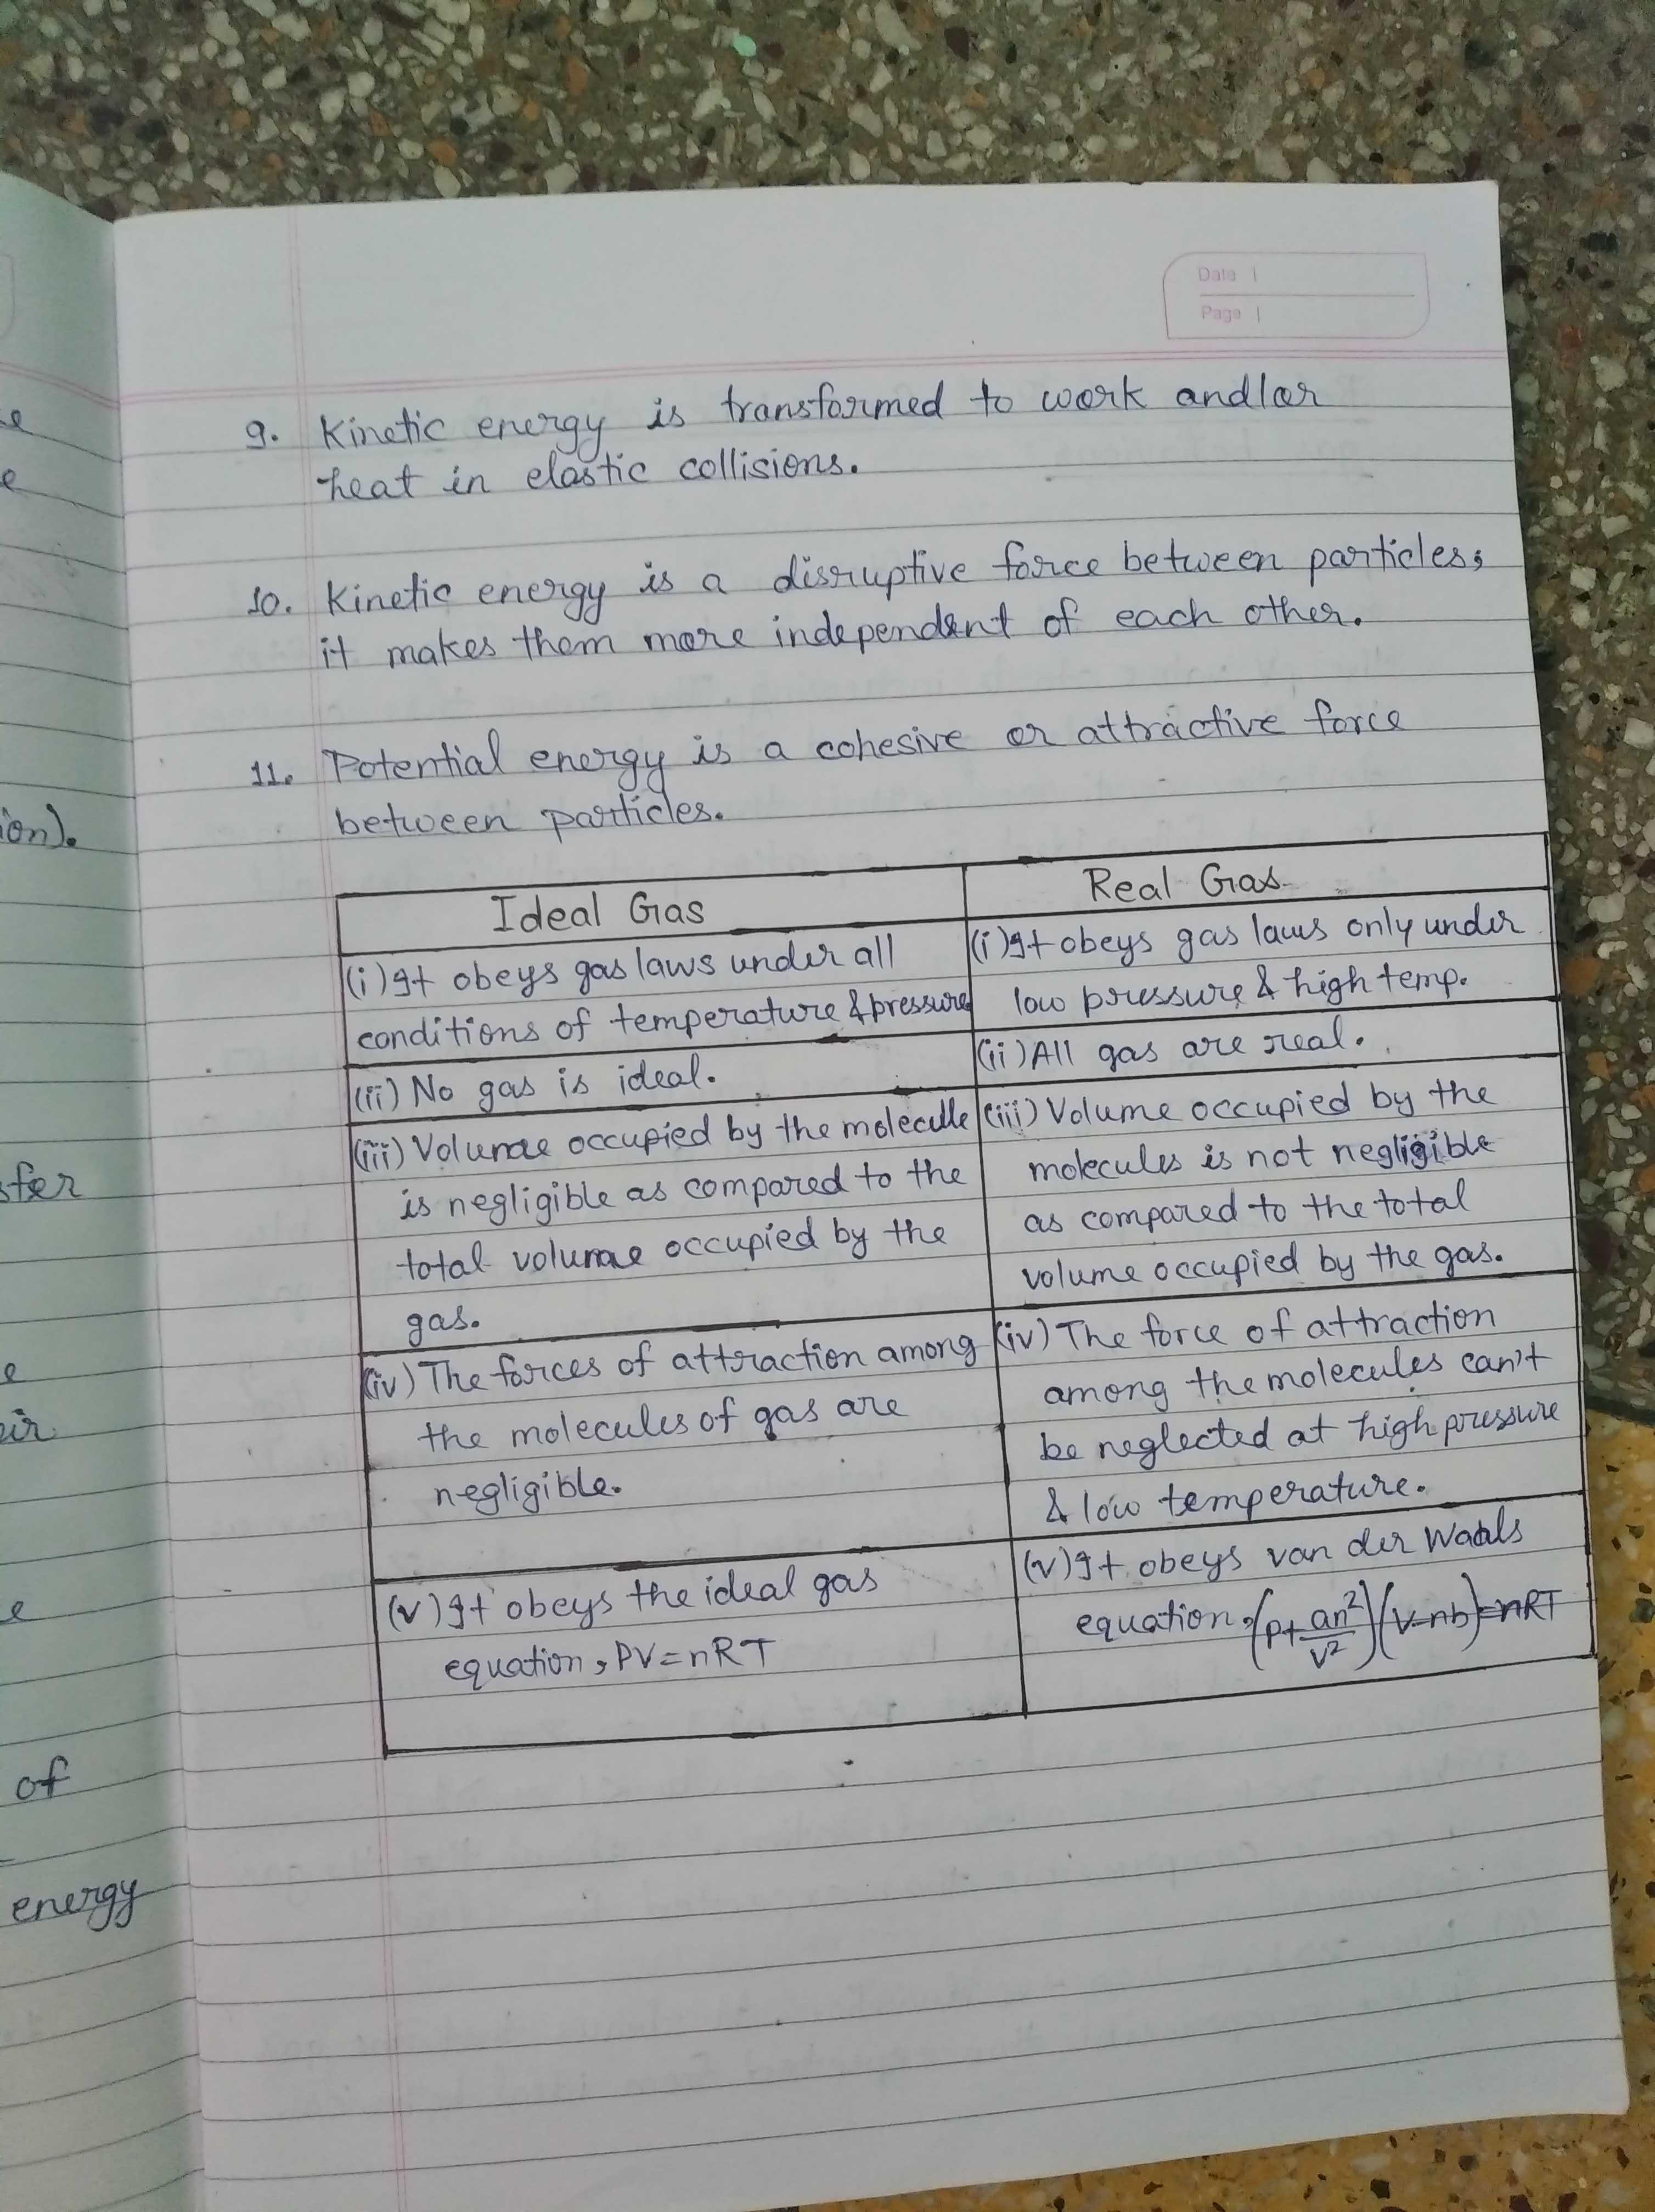 Date
Page
9. Kinetic energy is transformed to work and/or
heat in elastic collisions.
10. Kinetic energy is a disruptive force between particles;
it makes them more independent of each other.
11. Potential energy is a cohesive or attractive force
between particles.
Ideal Gas
Real Gas
(i) It obeys gas laws under all
conditions of temperature & pressure
(i) It obeys gas laws only under
low pressure & high temp.
(ii) No gas is ideal.
(ii) All gas are real.
(iii) Volume occupied by the molecule
is negligible as compared to the
total volume occupied by the
gas.
(iii) Volume occupied by the
molecules is not negligible
as compared to the total
volume occupied by the gas.
(iv) The forces of attraction among
the molecules of gas are
negligible.
(iv) The force of attraction
among the molecules can't
be neglected at high pressure
& low temperature.
(v) It obeys the ideal gas
equation, PV=nRT
(v) It obeys van der Waals
equation, (P+an²/V²)(V-nb)=nRT
ion).
sfer
of
energy